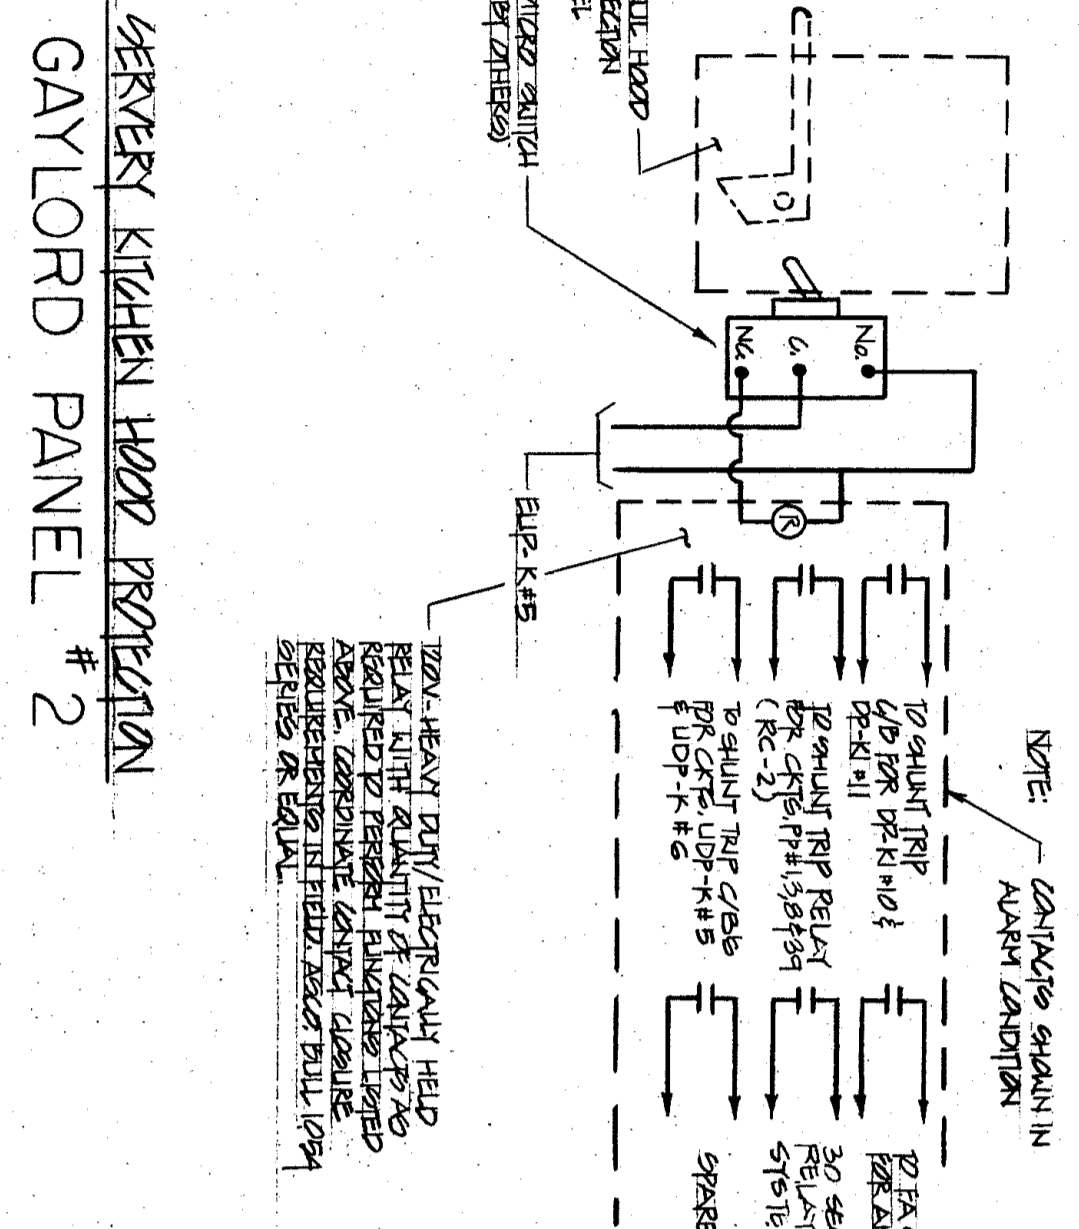 NOTE:
CONTACTS SHOWN IN
ALARM CONDITION
HOOD
MICRO SWITCH
BY OTHERS)
NO.
C.
NC.
R
EUP-K#5
TO SHUNT TRIP
C/B FOR DP-K1#10 &
DP-K1#11
TO SHUNT TRIP RELAY
FOR CKTS, PP#1,3,8&39
(RC-2)
TO SHUNT TRIP C/BS
FOR CKTS, UDP-K#5
& UDP-K#6
TO
30
RELAY
SPARE
120V-HEAVY DUTY/ELECTRICALLY HELD
RELAY WITH QUANTITY OF CONTACTS AS
REQUIRED TO PERFORM FUNCTIONS LISTED
ABOVE. COORDINATE CONTACT CLOSURE
REQUIREMENTS IN FIELD. ASCO BULL. 1054
SERIES OR EQUAL
SERVERY KITCHEN HOOD PROTECTION
GAYLORD PANEL #2